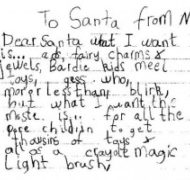 To Santa from N
Dear Santa what I want
is... a ds, fairy charms &
jewels, Bardie kids meel
toys, gess who,
more or less than, blink,
but what I want the
moste is... for all the
pore children to get
thousins of toys &
al so a crayola magic
light brush